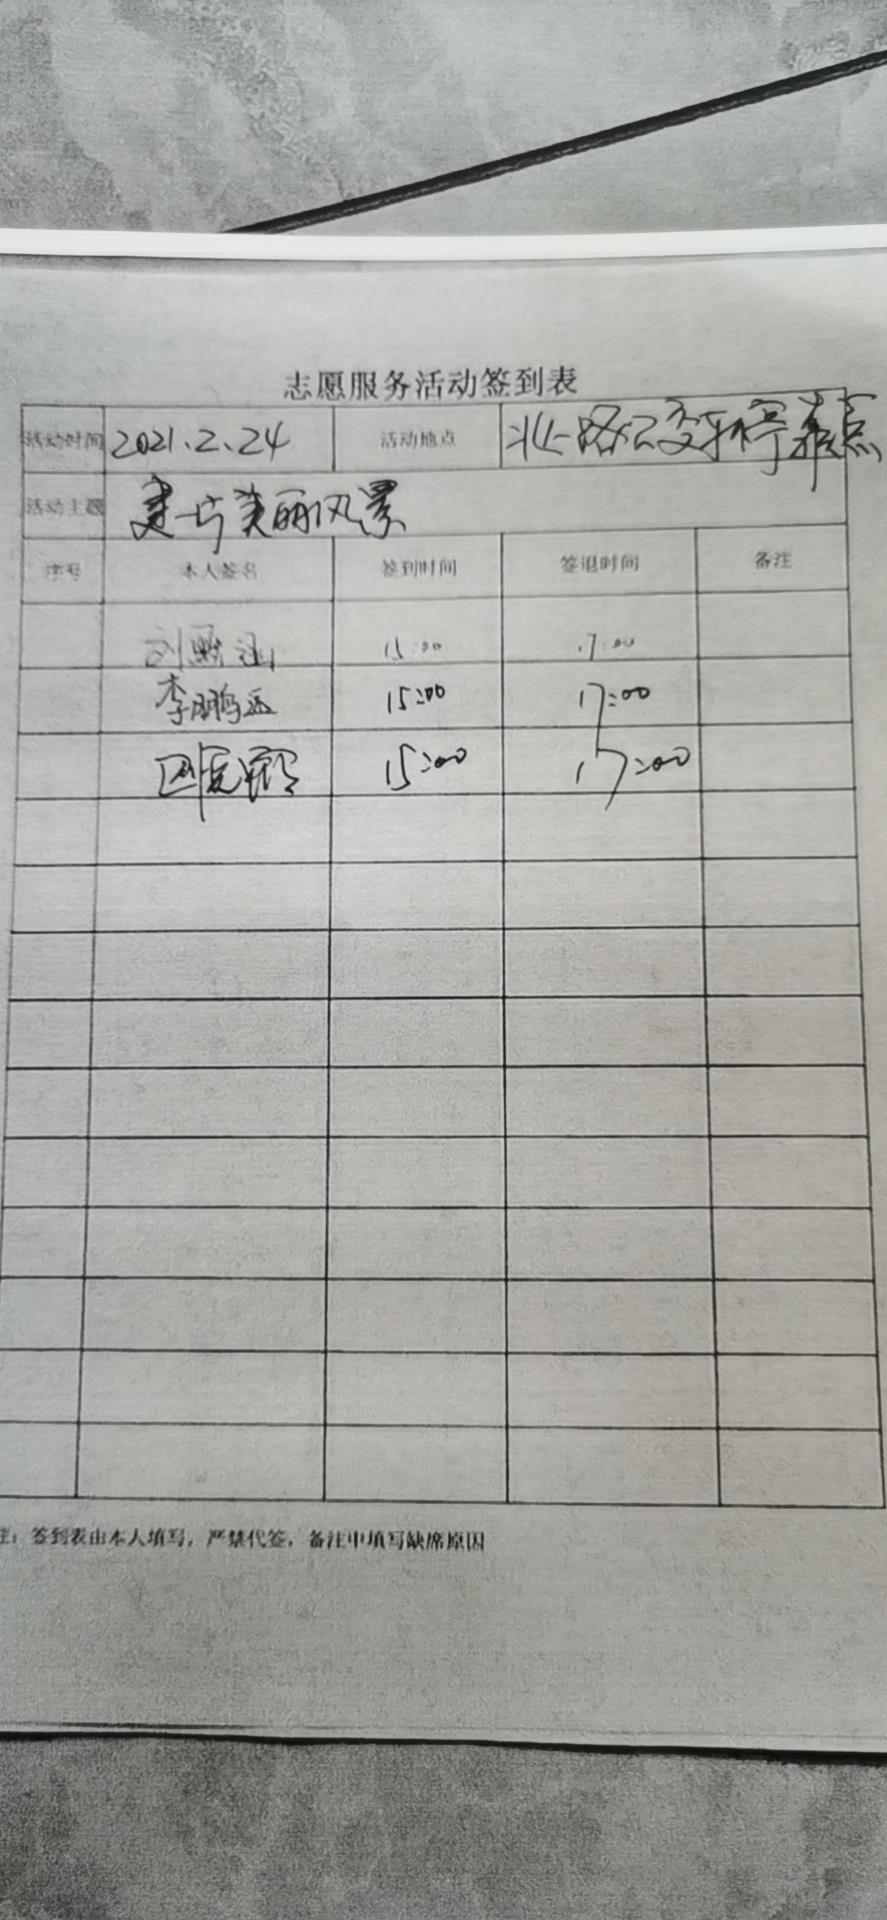 志愿服务活动签到表
活动时间 2021.2.24 活动地点 北一路公交车停靠点
活动主题 建一片美丽风景
序号 本人签名 签到时间 签退时间 备注
刘 15:00 17:00
李鹏 15:00 17:00
15:00 17:00
注：签到表由本人填写，严禁代签，备注中填写缺席原因